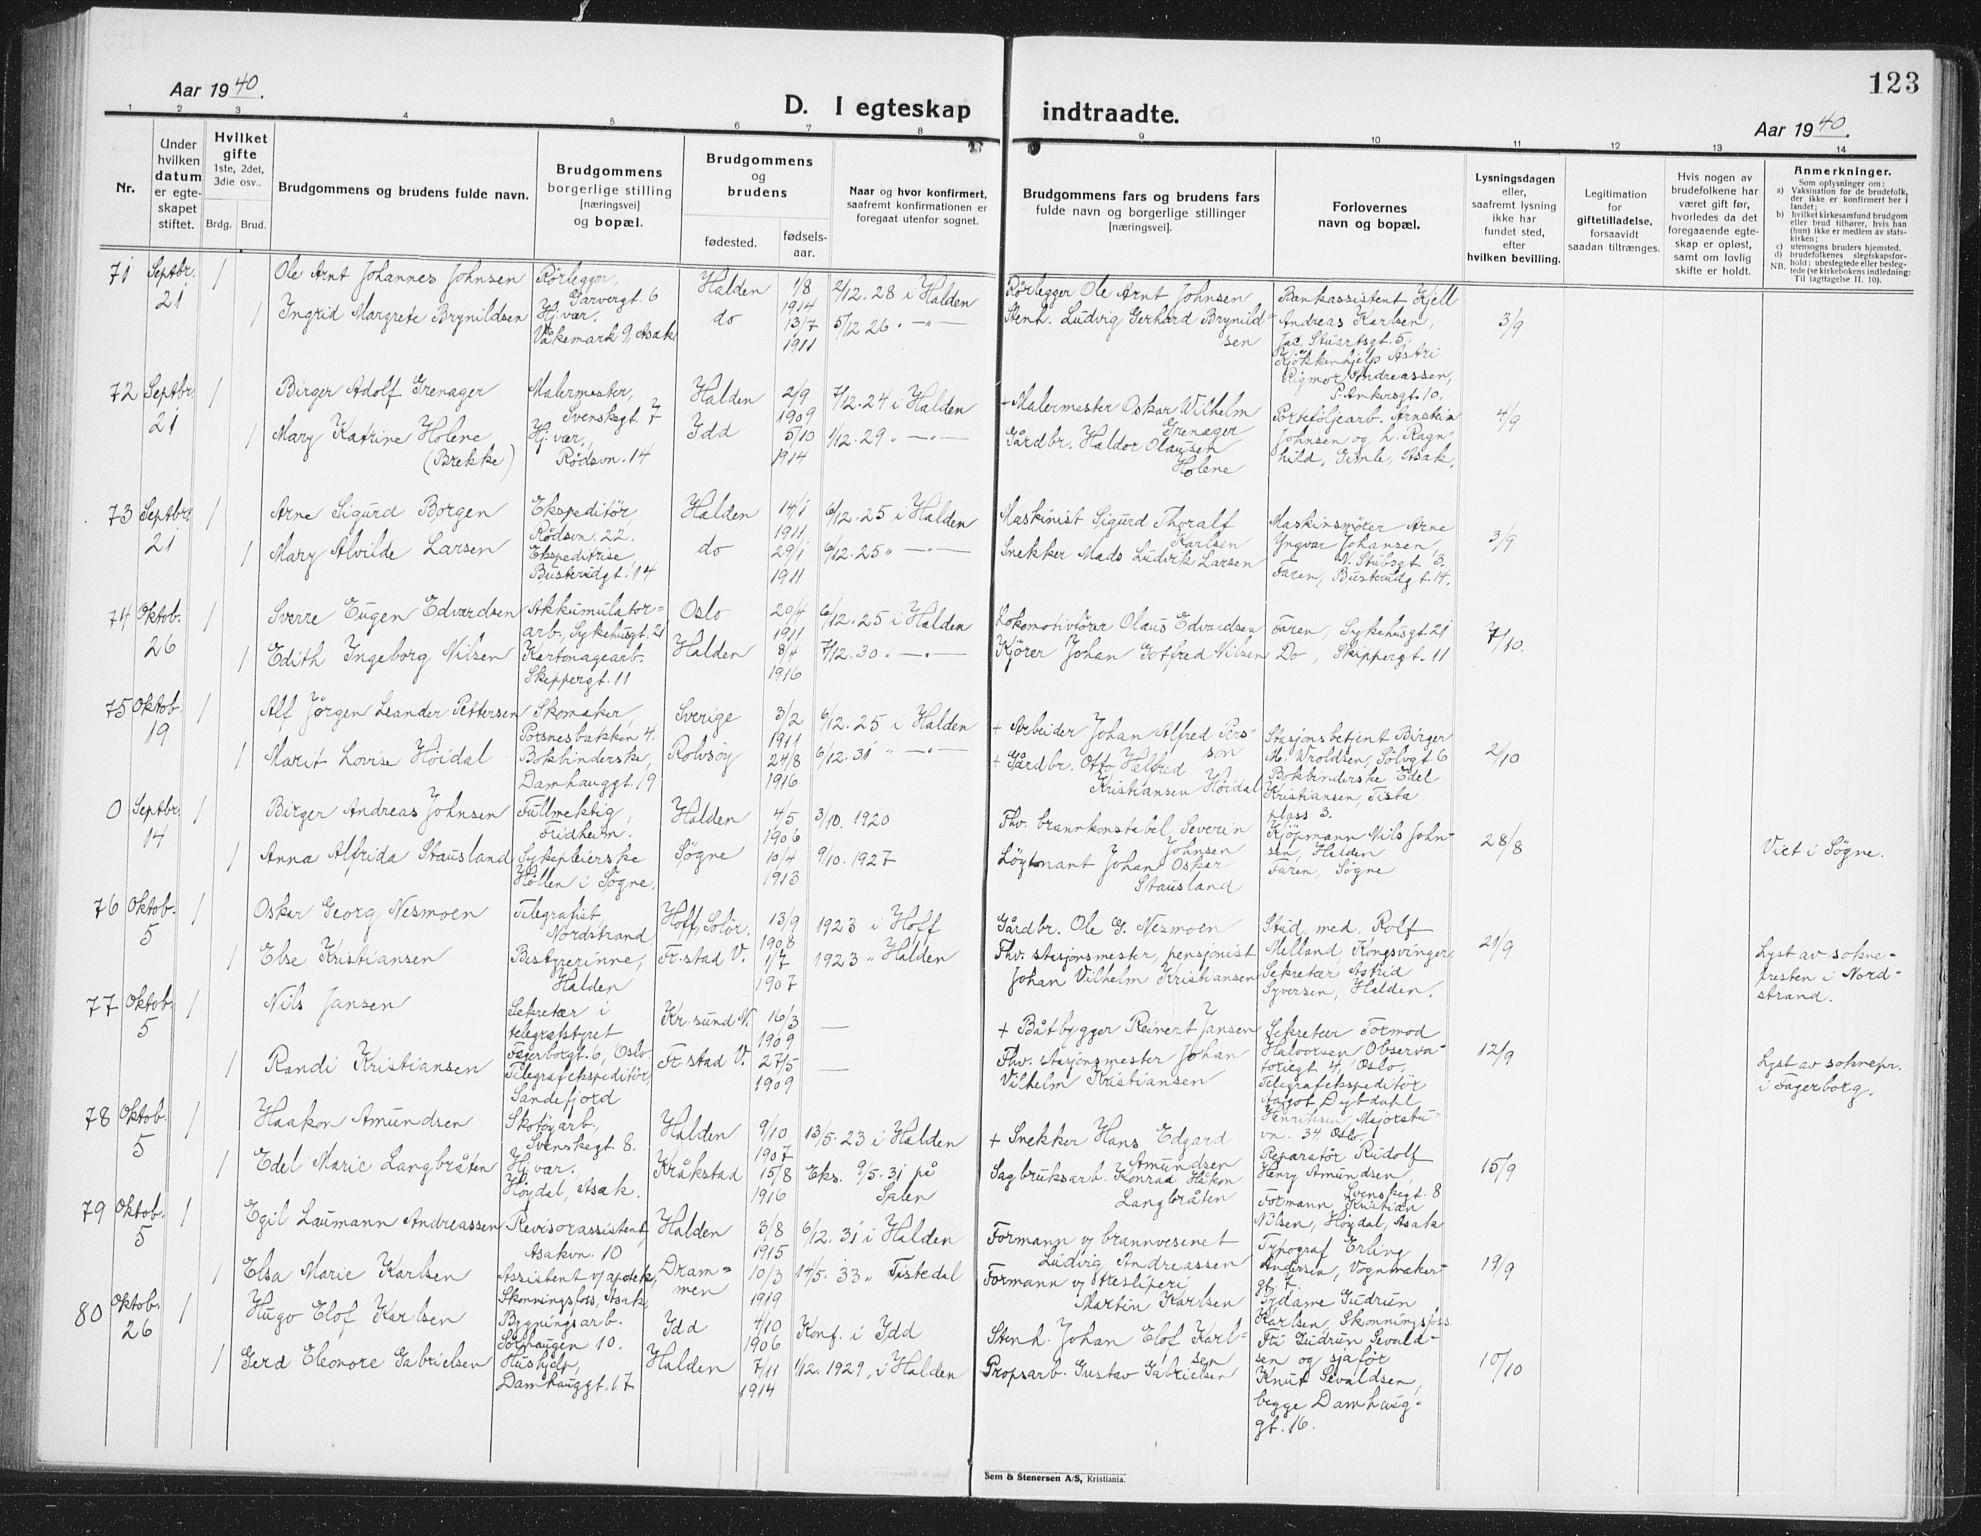 123
Aar 1940.
D. I egteskap indtraadte.
Aar 1940.
1 2 3 4 5 6 7 8 9 10 11 12 13 14
Nr.
Under hvilken datum er egte-skapet stiftet.
Hvilket gifte
1ste, 2det, 3die osv..
Brdg. Brud.
Brudgommens og brudens fulde navn.
Brudgommens borgerlige stilling [næringsvei] og bopæl.
Brudgommens og brudens
fødested. fødsels-aar.
Naar og hvor konfirmert, saafremt konfirmationen er foregaat utenfor sognet.
Brudgommens fars og brudens fars fulde navn og borgerlige stillinger [næringsvei].
Forlovernes navn og bopæl.
Lysningsdagen eller, saafremt lysning ikke har fundet sted, efter hvilken bevilling.
Legitimation for giftetilladelse, forsaavidt saadan tiltrænges.
Hvis nogen av brudefolkene har været gift før, hvorledes da det foregaaende egte-skap er opløst, samt om lovlig skifte er holdt.
Anmerkninger.
Som oplysninger om:
a) Vaksination for de brudefolk, der ikke er konfirmert her i landet;
b) hvilket kirkesamfund brudgom eller brud tilhører, hvis han (hun) ikke er medlem av stats-kirken;
c) utensogns bruders hjemsted.
d) brudefolkenes slegtskapsfor-hold: ubeslegtede eller besleg-tede (se kirkebokens indledning:
NB. Til iagttagelse II. 10).
71 Septbr. 21 1 Ole Arnt Johannes Johnsen Rørlegger, Garvergt. 6 Halden 1/8 1914 2/12. 28 i Halden Rørlegger Ole Arnt Johnsen Bankassistent Kjell Andreas Karlsen, Jac. Stuartsgt. 5.
1 Ingrid Margrete Brynildsen Hj. vær. Vakemark 9, Asak do 13/7 1911 5/12 26. -"- Stenh. Ludvig Gerhard Brynild-sen Kjøkkenhjelp Astri Rigmor Andreassen, P. Ankersgt. 10. 3/9
72 Septbr. 21 1 Birger Adolf Grenager Malermester, Svenskegt. 7 Halden 2/9 1909 7/12. 24 i Halden + Malermester Oskar Wilhelm Grenager Porteføljearb. Arnstein
1 Mary Katrine Holene (Brekke) Hj. vær., Rødsvn. 14 Idd 5/10 1914 1/12. 29 " -"- Gårdbr. Haldor Olausen Holene Johnsen og h. Ragn-hild, Gimle, Asak. 4/9
73 Septbr. 21 1 Arne Sigurd Borgen Ekspeditør, Rødsvn. 22. Halden 14/1 1911 6/12. 25 i Halden Maskinist Sigurd Thoralf Karlsen Maskinsmører Arne Yngvar Johansen, N. Stubsgt. 3.
1 Mary Alvilde Larsen Ekspeditrise Busterudgt. 14 do 29/1 1911 6/12. 25 " -"- Snekker Mads Ludvik Larsen Faren, Busterudgt. 14. 3/9
74 Oktob. 26 1 Sverre Eugen Edvardsen Akkumulator-arb., Sykehusgt. 21 Oslo 20/4 1911 6/12. 25 i Halden Lokomotivfører Olaus Edvardsen Faren, Sykehusgt. 21
1 Edith Ingeborg Nilsen Kartonagearb. Skippergt. 11 Halden 8/4 1916 7/12. 30. -"- Kjører Johan Gotfred Nilsen Do, Skippergt. 11 7/10.
75 Oktob. 19 1 Alf Jørgen Leander Pettersen Skomaker, Porsnesbakken 4. Sverige 3/2 1911 6/12. 25 i Halden + Arbeider Johan Alfred Pers-son Stasjonsbetjent Birger M. Wroldsen, Sølvgt. 6
1 Marit Lovise Höidal Bokbinderske, Damhauggt. 19 Rolvsøy 24/8 1916 6/12. 31 " -"- + Gårdbr. Otto Halfred Kristiansen Höidal Bokbinderske Edel Kristiansen, Tista plass 3. 2/10
0 Septbr. 14 1 Birger Andreas Johnsen Fullmektig, Fridheim. Halden 4/5 1906 3/10. 1920 Fhv. brannkonstabel Severin Johnsen Kjøpmann Nils John-sen, Halden
1 Anna Alfrida Stausland Sykepleierske Høllen i Søgne. Søgne 10/4 1913 9/10. 1927 Løytnant Johan Oskar Stausland Faren, Søgne 28/8 Viet i Søgne.
76 Oktob. 5 1 Oskar Georg Nesmoen Telegrafist, Nordstrand Hoff, Solør. 13/9 1908 1923 i Hoff Gårdbr. Ole G. Nesmoen Stud. med. Rolf Melland, Kongsvinger,
1 Else Kristiansen Bestyrerinne, Halden Fr.stad V. 1/7 1907 1923 " Halden Fhv. stasjonsmester, pensjonist Johan Vilhelm Kristiansen Sekretær Astrid Syversen, Halden. 21/9 Lyst av sokne-presten i Nord-strand.
77 Oktob. 5 1 Nils Jansen Sekretær i telegrafstyret Fagerborgt. 6, Oslo. Kr.sund N. 16/3 1909 — + Båtbygger Reinert Jansen Sekretær Tormod Halvorsen Observa-torigt. 4, Oslo,
1 Randi Kristiansen Telegrafekspeditør, Sandefjord Fr.stad V. 27/5 1909 — Fhv. stasjonsmester Johan Vilhelm Kristiansen Telegrafekspeditør Aagot Dybdahl Henriksen, Majorstu-vn. 34, Oslo 12/9 Lyst av soknepr. i Fagerborg.
78 Oktob. 5 1 Haakon Amundsen Skotøyarb., Svenskegt. 8. Halden 9/10 1907 13/5. 23 i Halden + Snekker Hans Edgard Amundsen Reparatør Rudolf Henry Amundsen, Svenskegt. 8
1 Edel Marie Langbråten Hj. vær. Høydal, Asak. Kråkstad 15/8 1916 Eks. 9/5. 31 på Salen Sagbruksarb. Konrad Håkon Langbråten Formann Kristian Nilsen, Høydal, Asak 15/9
79 Oktob. 5 1 Egil Laumann Andreassen Revisorassistent, Asakvn. 10 Halden 3/8 1915 6/12. 31 i Halden Formann v/ brannvesenet Ludvig Andreassen Typograf Erling Andersen, Vognmaker-gt. 7.
1 Elsa Marie Karlsen Assistent v/ apotek, Skonningsfoss, Asak, Dram-men 10/3 1919 14/5. 33 " Tistedal Formann v/ Martin Karlsen Sydame Gudrun Karlsen, Skonningsfoss. 19/9
80 Oktob. 26 1 Hugo Elof Karlsen Bygningsarb. Sørhaugen 10. Idd 4/10 1906 Konf. i Idd Stenh. Johan Elof Karl-sen Frk. Gudrun Sevald-sen og sjåfør
1 Gerd Eleonore Gabrielsen Hushjelp, Damhauggt. 17 Halden 7/11 1914 1/12. 1929, i Halden Propsarb. Gustav Gabrielsen Knut Sevaldsen, begge Damhaug-gt. 16. 10/10
Sem & Stenersen A/S, Kristiania.